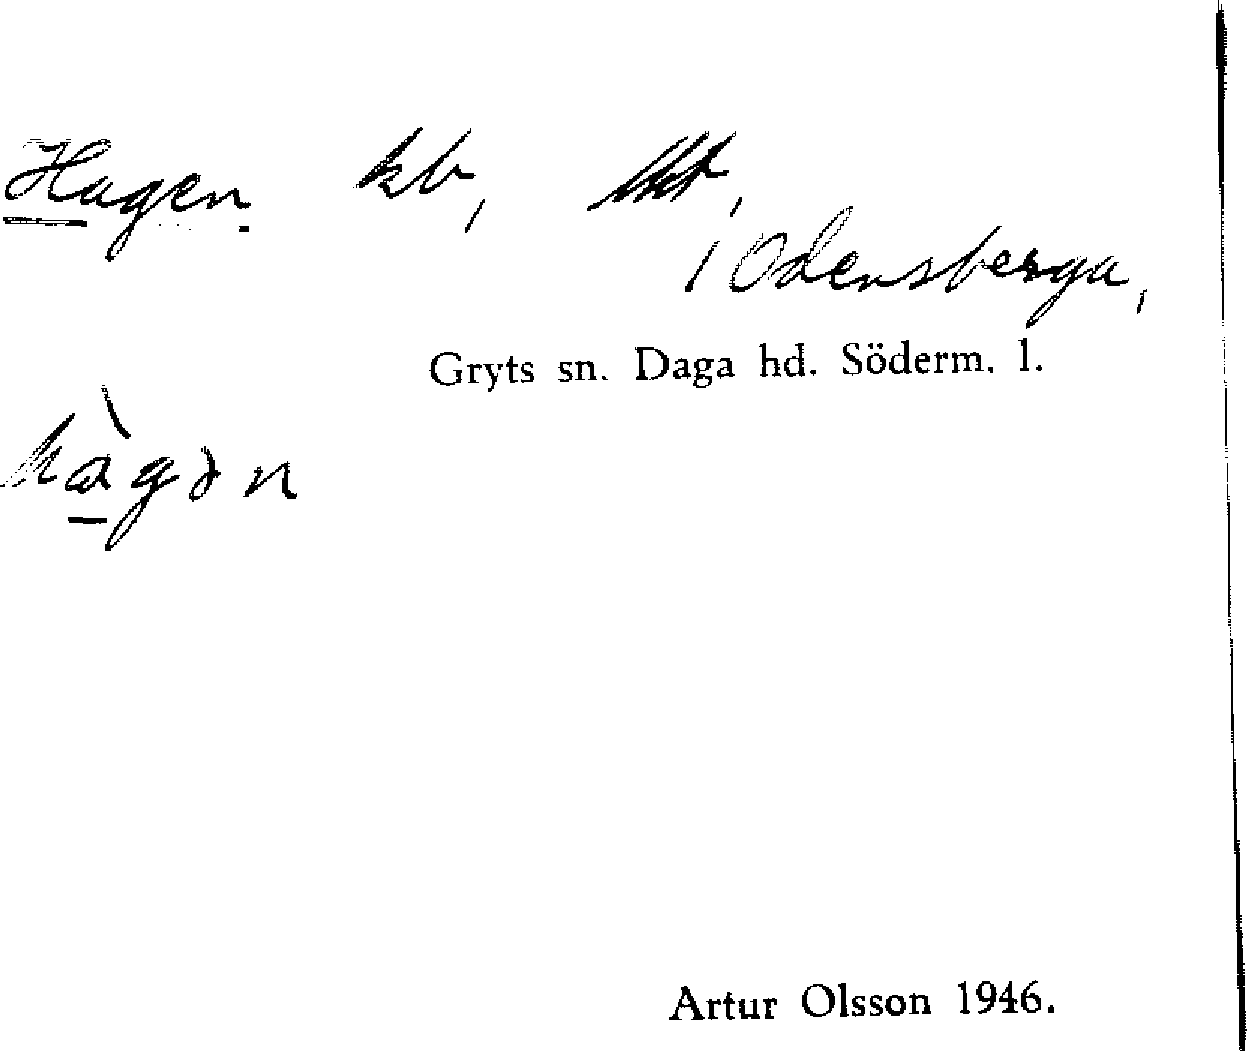 Hagen kb,
i Odensberga,
Gryts sn. Daga hd. Söderm. l.
hàgən
Artur Olsson 1946.